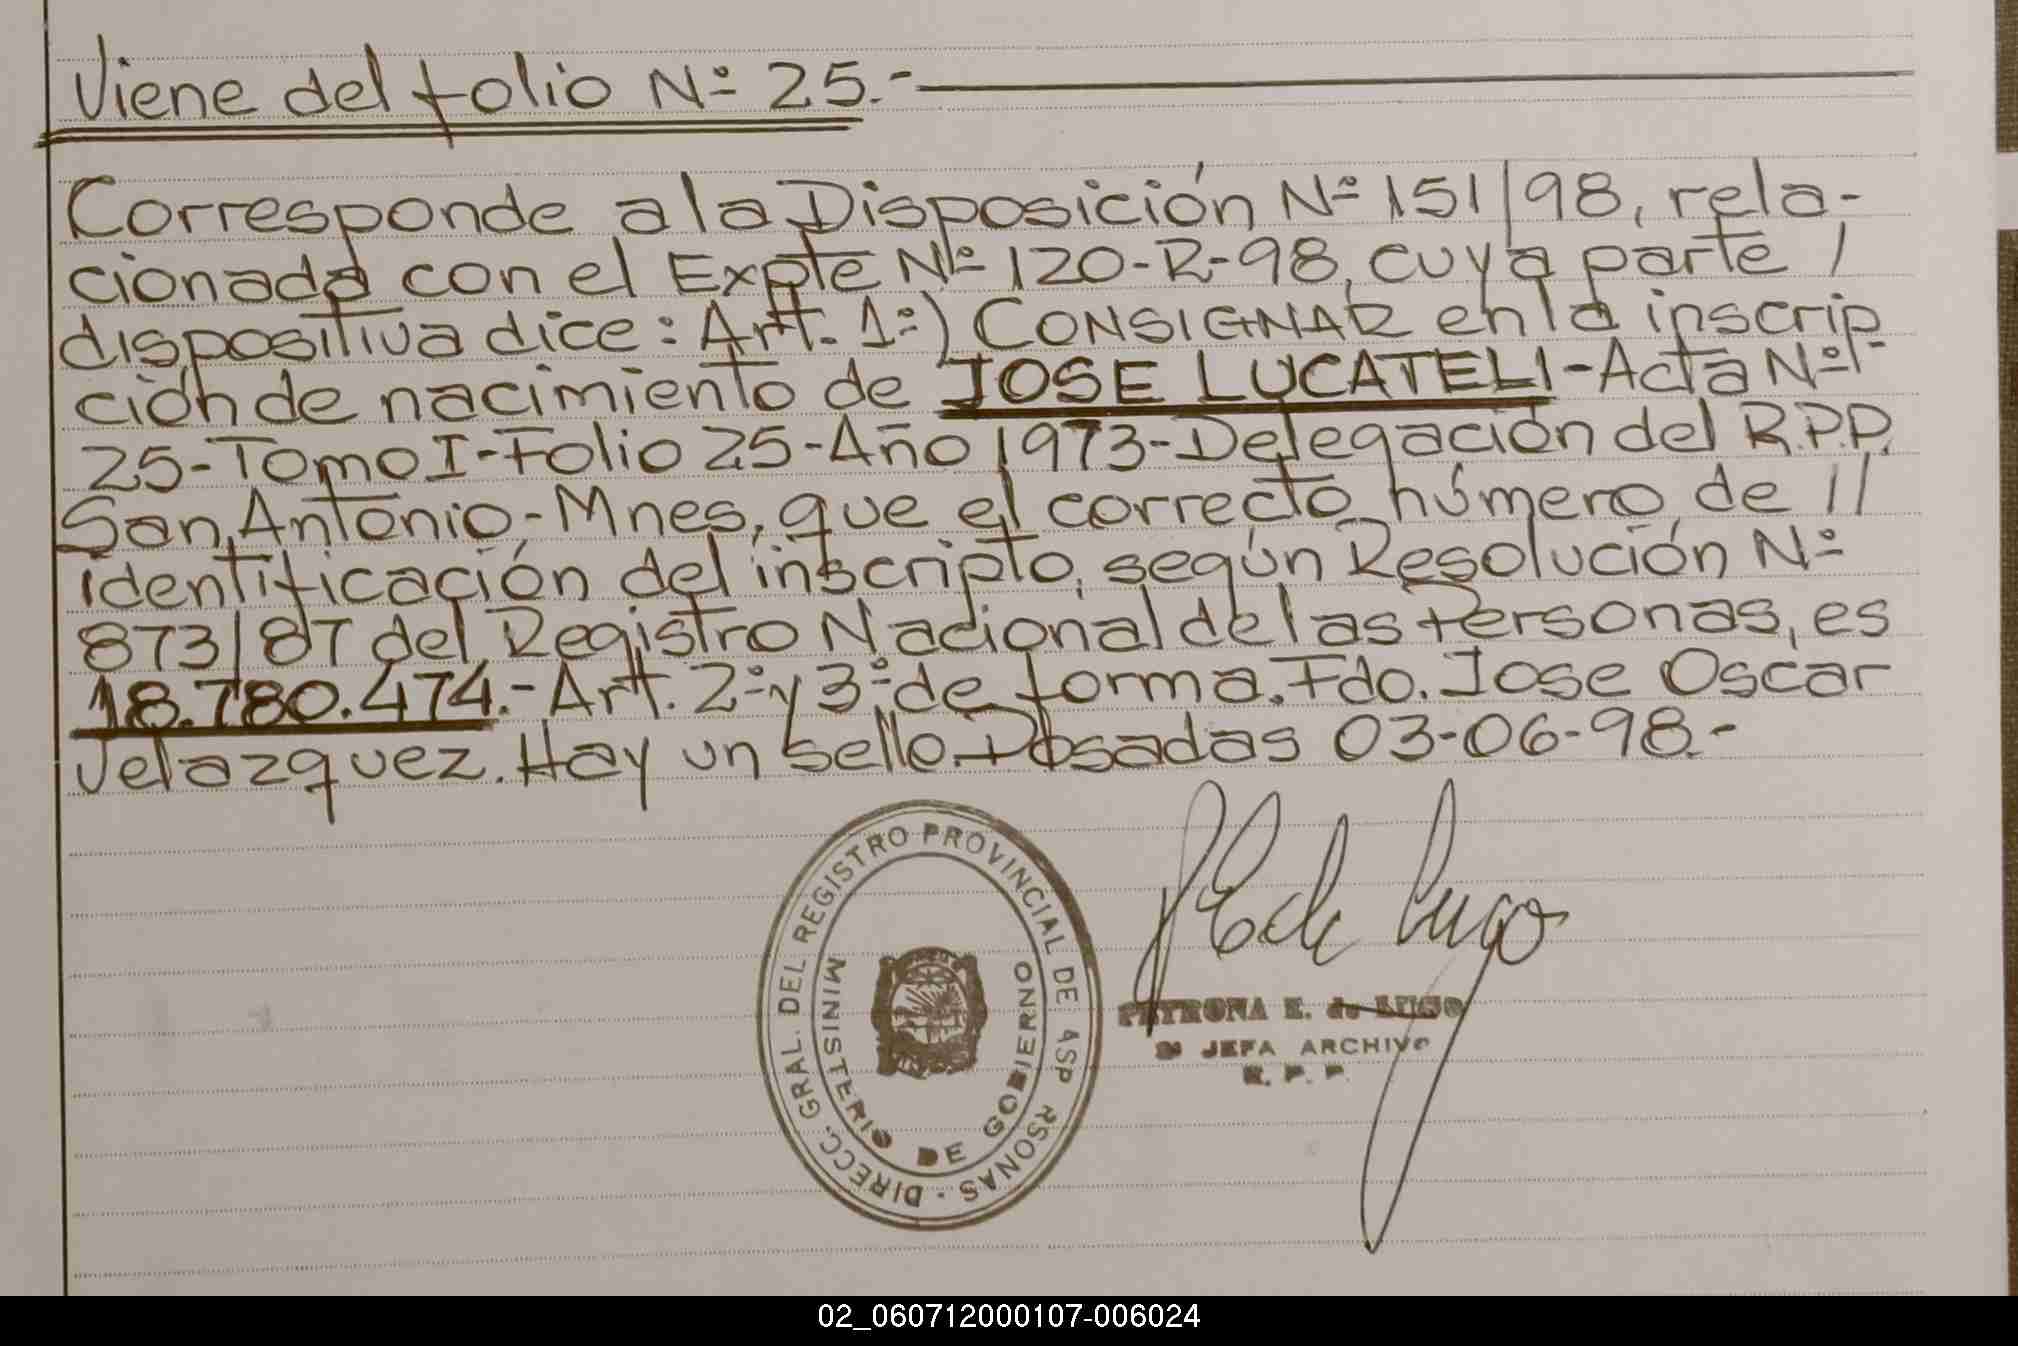 Viene del folio Nº 25.-
Corresponde a la Disposición Nº 151/98, rela-
cionada con el Expte Nº 120-R-98, cuya parte /
dispositiva dice: Art. 1º) CONSIGNAR en la inscrip-
ción de nacimiento de JOSE LUCATELI - Acta Nº
25 - Tomo I - Folio 25 - Año 1973 - Delegación del R.P.P.
San Antonio - Mnes, que el correcto número de //
identificación del inscripto, según Resolución Nº
873/87 del Registro Nacional de las Personas, es
18.780.474.- Art. 2º y 3º de forma. Fdo. Jose Oscar
Velazquez. Hay un sello. Posadas 03-06-98.-
DIRECC. GRAL. DEL REGISTRO PROVINCIAL DE ASP RSONAS
MINISTERIO DE GOBIERNO
PETRONA E. d. LUGO
JEFA ARCHIVO
R. P. P.
02_060712000107-006024